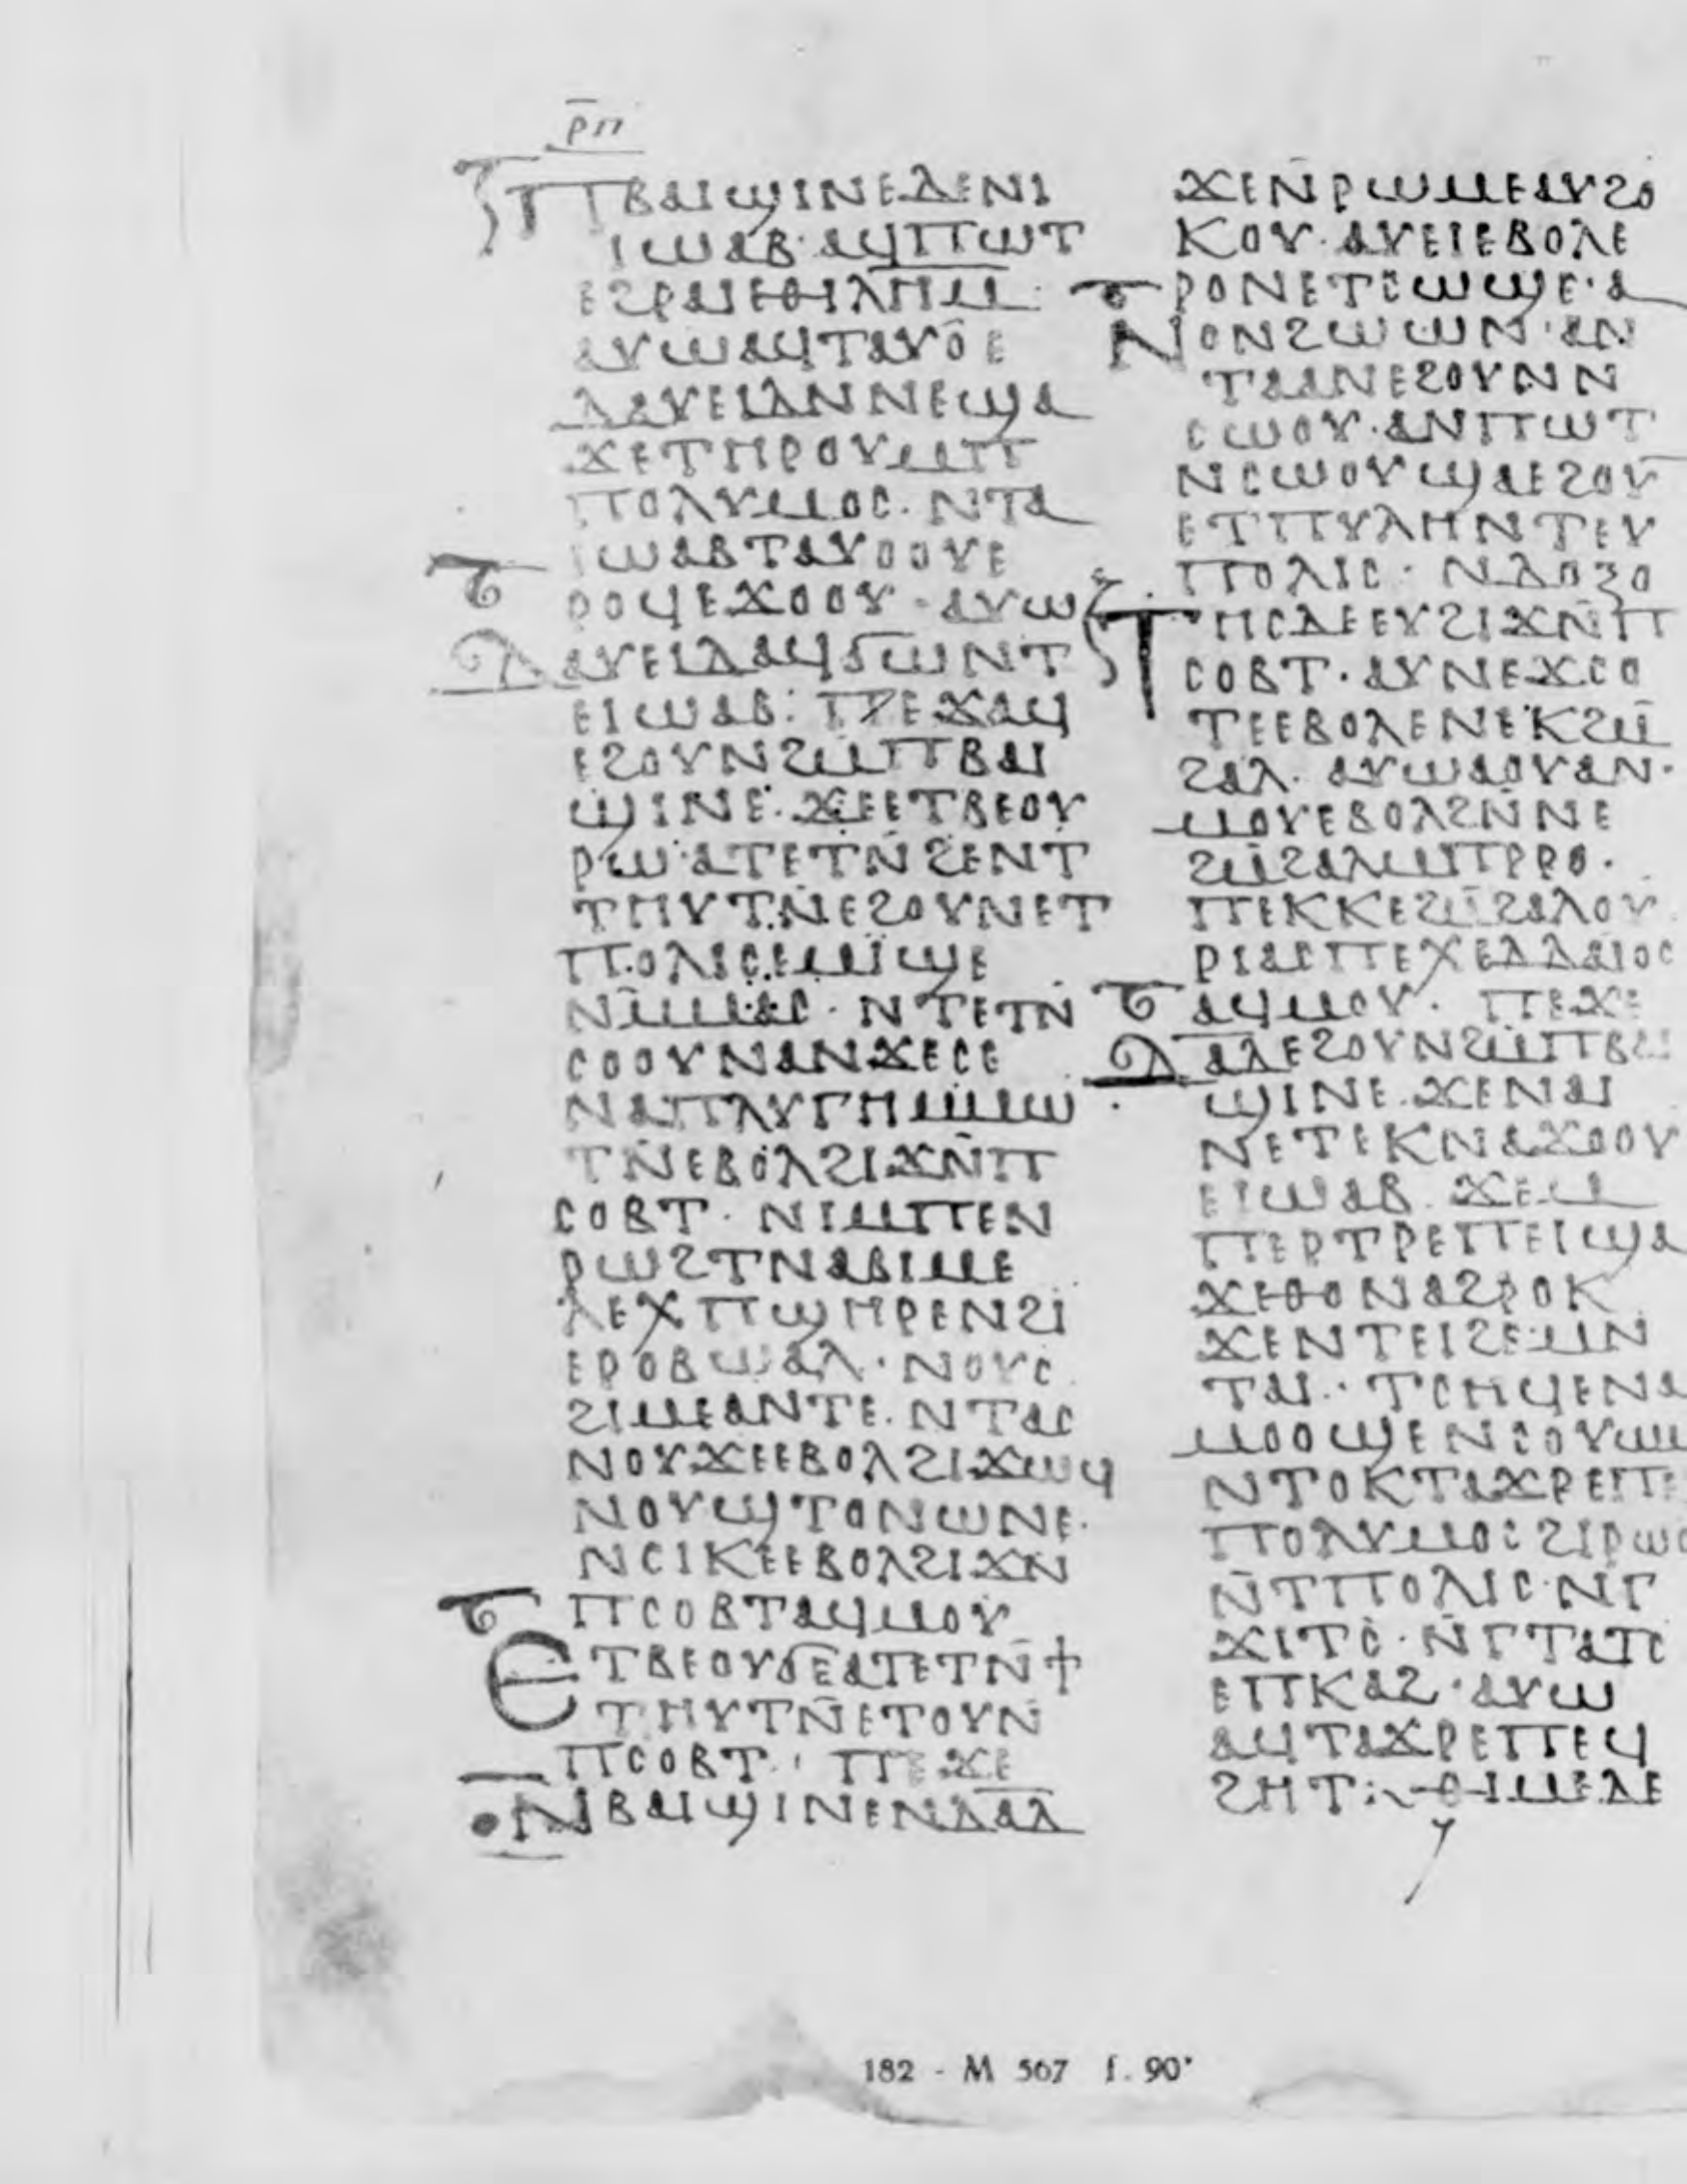 ⲣ̅ⲡ
ⲡⲃⲁⲓϣⲓⲛⲉⲇⲉⲛⲓ
ⲓⲱⲁⲃ· ⲁϥⲡⲱⲧ
ⲉϩⲣⲁⲓⲉⲑⲓⲗⲏⲙ·
ⲁⲩⲱⲁϥⲧⲁⲩⲟⲉ
ⲇⲁⲩⲉⲓⲇⲛⲛⲉϣⲁ
ϫⲉⲧⲏⲣⲟⲩⲙⲡ
ⲡⲟⲗⲩⲙⲟⲥ· ⲛⲧⲁ
ⲓⲱⲁⲃⲧⲁⲩⲟⲟⲩⲉ
ⲣⲟϥⲉϫⲟⲟⲩ· ⲁⲩⲱ
ⲇⲁⲩⲉⲓⲇⲁϥϭⲱⲛⲧ
ⲉⲓⲱⲁⲃ: ⲡⲉϫⲁϥ
ⲉϩⲟⲩⲛϩⲙⲡⲃⲁⲓ
ϣⲓⲛⲉ· ϫⲉⲉⲧⲃⲉⲟⲩ
ⲣⲱ·ⲁⲧⲉⲧⲛ̄ϩⲉⲛⲧ
ⲧⲏⲩⲧⲛ̄ⲉϩⲟⲩⲛⲉⲧ
ⲡⲟⲗⲓⲥⲉⲙⲓϣⲉ
ⲛⲙ̄ⲙⲁⲥ· ⲛⲧⲉⲧⲛ̄
ⲥⲟⲟⲩⲛⲁⲛϫⲉⲥⲉ
ⲛⲁⲡⲗⲩⲅⲏⲙⲙⲱ
ⲧⲛ̄ⲉⲃⲟⲗϩⲓϫⲛ̄ⲡ
ⲥⲟⲃⲧ· ⲛⲓⲙⲡⲉⲛ
ⲣⲱϩⲧⲛⲁⲃⲓⲙⲉ
ⲗⲉⲭⲡϣⲏⲣⲉⲛϩⲓ
ⲉⲣⲟⲃⲱⲁⲗ· ⲛⲟⲩⲥ
ϩⲓⲙⲉⲁⲛⲧⲉ· ⲛⲧⲁⲥ
ⲛⲟⲩϫⲉⲉⲃⲟⲗϩⲓϫⲱϥ
ⲛⲟⲩϣⲧⲟⲛⲱⲛⲉ·
ⲛⲥⲓⲕⲉⲉⲃⲟⲗϩⲓϫⲛ
ⲡⲥⲟⲃⲧⲁϥⲙⲟⲩ
ⲉⲧⲃⲉⲟⲩϭⲉⲁⲧⲉⲧⲛ̄ϯ
ⲧⲏⲩⲧⲛ̄ⲉⲧⲟⲩⲛ
ⲡⲥⲟⲃⲧ· ⲡⲉϫⲉ
ⲡⲃⲁⲓϣⲓⲛⲉⲛⲇⲁⲇ
ϫⲉⲛ̄ⲣⲱⲙⲉⲁⲩϭⲟ
ⲕⲟⲩ· ⲁⲩⲉⲓⲉⲃⲟⲗⲉ
ⲣⲟⲛⲉⲧⲥⲱϣⲉ·ⲁ
ⲛⲟⲛϩⲱⲱⲛ·ⲁⲛ
ⲧⲁⲁⲛⲉϩⲟⲩⲛⲛ
ⲥⲱⲟⲩ·ⲁⲛⲡⲱⲧ
ⲛⲥⲱⲟⲩϣⲁⲉϩⲟⲩ̄
ⲉⲧⲡⲩⲗⲏⲛⲧⲉⲩ
ⲡⲟⲗⲓⲥ· ⲛⲗⲟϭⲟ
ⲧⲏⲥⲇⲉⲉⲩϩⲓϫⲛ̄ⲡ
ⲥⲟⲃⲧ·ⲁⲩⲛⲉϫⲥⲟ
ⲧⲉⲉⲃⲟⲗⲉⲛⲉⲕϩⲙ̄
ϩⲁⲗ· ⲁⲩⲱⲁⲟⲩⲁⲛ·
ⲙⲟⲩⲉⲃⲟⲗϩⲛ̄ⲛⲉ
ϩⲙ̄ϩⲁⲗⲙⲡⲣⲣⲟ·
ⲡⲉⲕⲕⲉϩⲙ̄ϩⲁⲗⲟⲩ
ⲣⲓⲁⲥⲡⲉⲭⲉⲇⲇⲁⲓⲟⲥ
ⲁϥⲙⲟⲩ· ⲡⲉϫⲉ
ⲇⲁⲇⲉϩⲟⲩⲛϩⲙⲡⲃⲁⲓ
ϣⲓⲛⲉ·ϫⲉⲛⲁⲓ
ⲛⲉⲧⲉⲕⲛⲁϫⲟⲟⲩ
ⲉⲓⲱⲁⲃ· ϫⲉⲙ
ⲡⲉⲣⲧⲣⲉⲡⲉⲓϣⲁ
ϫⲉⲑⲟⲛⲁϩⲣⲟⲕ
ϫⲉⲛⲧⲉⲓϩⲉ·ⲙⲛ
ⲧⲁⲓ·· ⲧⲥⲏϥⲉⲛⲁ
ⲙⲟⲟϣⲉⲛⲥⲟⲩⲱⲙ
ⲛⲧⲟⲕⲧⲁϫⲣⲉⲡⲉ
ⲡⲟⲗⲩⲙⲟⲥϩⲓⲣⲱ
ⲛ̄ⲧⲡⲟⲗⲓⲥ·ⲛⲅ
ϫⲓⲧⲥ̄·ⲛ̄ⲅⲧⲁⲡⲥ
ⲉⲡⲕⲁϩ·ⲁⲩⲱ
ⲁϥⲧⲁϫⲣⲉⲡⲉϥ
ϩⲏⲧ: ⲑⲓⲙⲉⲇⲉ
182 - M 567 f. 90ᵛ